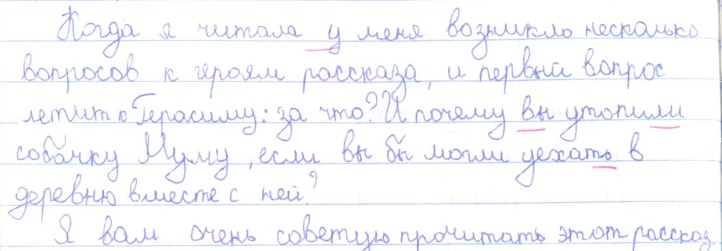 Когда я читала у меня возникло несколько
вопросов к героям рассказа, и первый вопрос
летит к Герасиму: за что? И почему вы утопили
собачку Муму, если вы бы могли уехать в
деревню вместе с ней?
Я вам очень советую прочитать этот рассказ